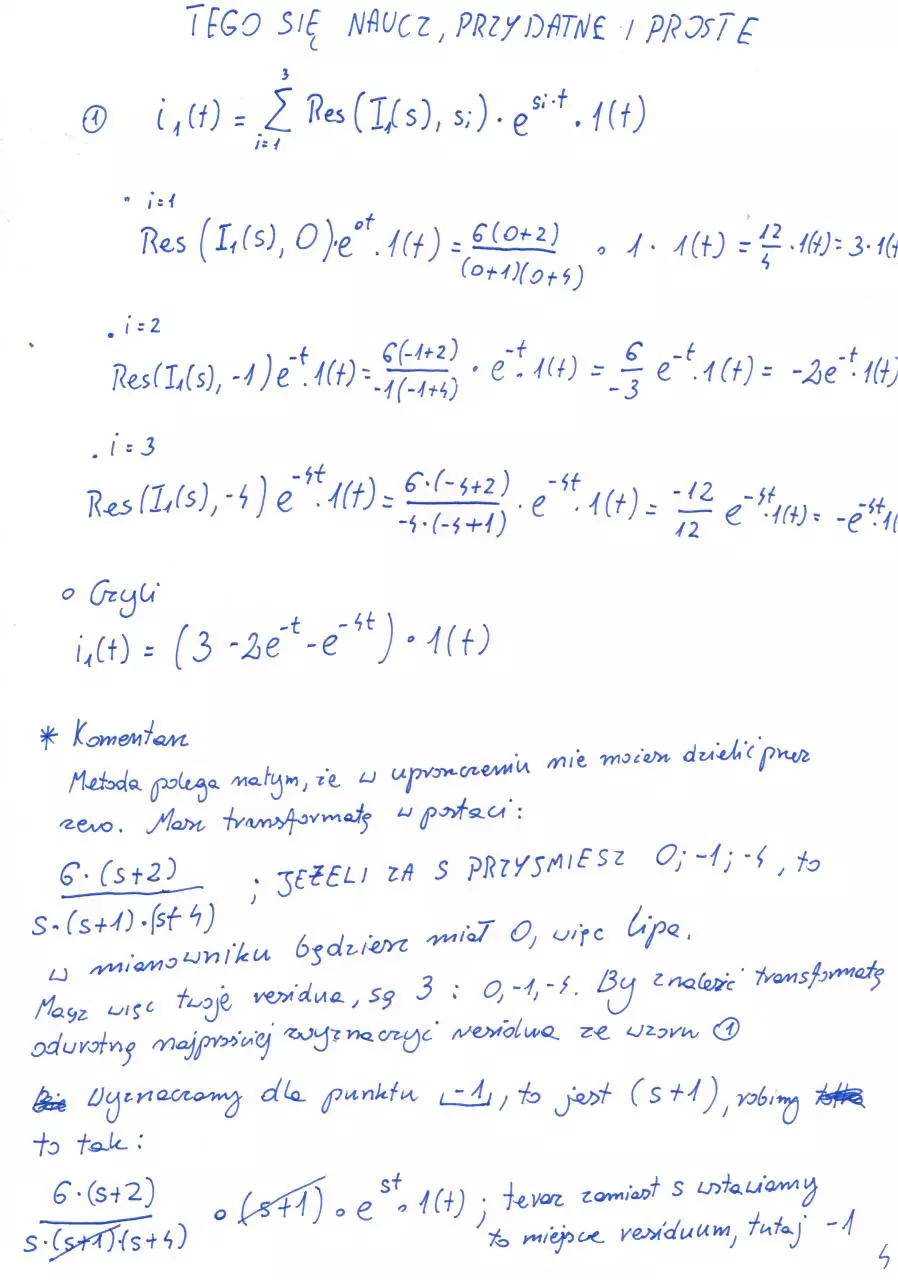 TEGO SIĘ NAUCZ, PRZYDATNE I PROSTE
① i₁(t) = ∑_{i=1}^{3} Res(I₁(s), sᵢ) · e^{si·t} · 1(t)
• i=1
Res(I₁(s), 0)·e^{0t}·1(t) = \frac{6(0+2)}{(0+1)(0+4)} · 1 · 1(t) = \frac{12}{4} · 1(t) = 3 · 1(t
• i=2
Res(I₁(s), -1)e^{-t}·1(t) = \frac{6(-1+2)}{-1(-1+4)} · e^{-t}·1(t) = \frac{6}{-3} e^{-t}·1(t) = -2e^{-t}·1(t)
• i=3
Res(I₁(s), -4)e^{-4t}·1(t) = \frac{6·(-4+2)}{-4·(-4+1)} · e^{-4t}·1(t) = \frac{-12}{12} e^{-4t}·1(t) = -e^{-4t}·1(
o Czyli
i₁(t) = (3 - 2e^{-t} - e^{-4t}) · 1(t)
* Komentarz
Metoda polega na tym, że w uproszczeniu nie możesz dzielić przez
zero. Masz transformatę w postaci:
\frac{6·(s+2)}{s·(s+1)·(s+4)} ; JEŻELI ZA S PRZYJMIESZ 0; -1; -4, to
w mianowniku będziesz miał 0, więc lipa.
Masz więc twoje residua, są 3 : 0, -1, -4. By znaleźć transformatę
odwrotną najprościej wyznaczyć residua ze wzoru ①
Wyznaczamy dla punktu -1, to jest (s+1), robimy
to tak:
\frac{6·(s+2)}{s·(s+1)·(s+4)} · (s+1) · e^{st} · 1(t) ; teraz zamiast s wstawiamy
to miejsce residuum, tutaj -1
4